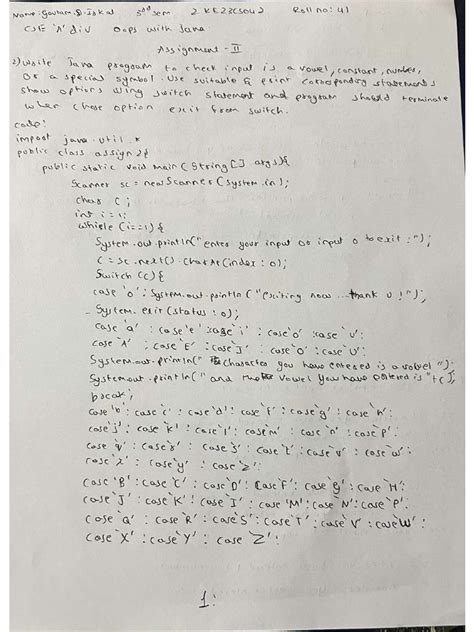 Name: Goutam.D.Iskal 3rd sem 2KE23CS042 Roll no: 41
CSE 'A' div oops with Java
Assignment - II
2) write Java program to check input is a vowel, constant, number,
or a special symbol. Use suitable & print corresponding statements
show options using switch statement and program should terminate
when chose option exit from switch.
code:
import java.util.*
public class assign2{
public static void main (String[] args){
Scanner sc = new Scanner (System.in);
char c;
int i = 1;
while (i==1){
System.out.println("enter your input or input 0 to exit :");
c = sc.next().charAt(index : 0);
Switch (c){
case '0': System.out.println ("exciting now ... thank u !");
System.exit (status : 0);
case 'a' : case 'e' : case 'i' : case 'o' : case 'u':
case 'A' : case 'E' : case 'I' : case 'O' : case 'U':
System.out.println(" character you have entered is a vowel");
System.out.println(" and the vowel you have entered is "+c);
break;
case 'b' : case 'c' : case 'd' : case 'f' : case 'g' : case 'h':
case 'j' : case 'k' : case 'l' : case 'm' : case 'n' : case 'p':
case 'q' : case 'r' : case 's' : case 't' : case 'v' : case 'w':
case 'x' : case 'y' : case 'z':
case 'B' : case 'C' : case 'D' : case 'F' : case 'G' : case 'H':
case 'J' : case 'K' : case 'L' : case 'M' : case 'N' : case 'P':
case 'Q' : case 'R' : case 'S' : case 'T' : case 'V' : case 'W':
case 'X' : case 'Y' : case 'Z':
1: